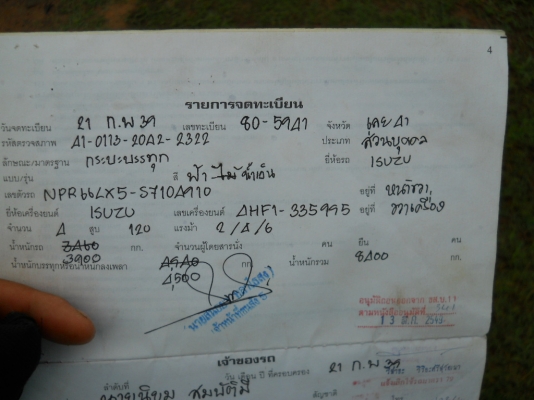 4
รายการจดทะเบียน
วันจดทะเบียน 21 ก.พ 39 เลขทะเบียน 80-5941 จังหวัด
รหัสตรวจสภาพ 41-0113-2042-2322 ประเภท ส่วนบุคคล
ลักษณะ/มาตรฐาน กระบะบรรทุก ยี่ห้อรถ ISUZU
แบบ/รุ่น สี ฟ้า-ไม้
เลขตัวรถ NPR66LX5-S710A910 อยู่ที่
ยี่ห้อเครื่องยนต์ ISUZU เลขเครื่องยนต์ 4HF1-335995 อยู่ที่ ขวาเครื่อง
จำนวน 4 สูบ 120 แรงม้า 2/4/6
น้ำหนักรถ กก. จำนวนผู้โดยสารนั่ง คน ยืน คน
3900
น้ำหนักบรรทุกหรือน้ำหนักลงเพลา กก. น้ำหนักรวม 8400 กก.
4,500
เจ้าของรถ
วัน เดือน ปี ที่ครอบครอง 21 ก.พ 39
ลำดับที่ สัญชาติ